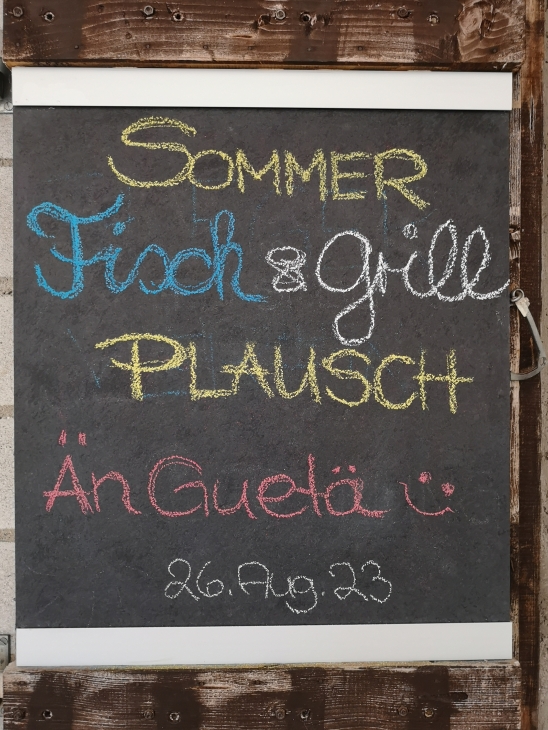 SOMMER
Fisch & Grill
PLAUSCH
Än Guetä :)
26. Aug. 23